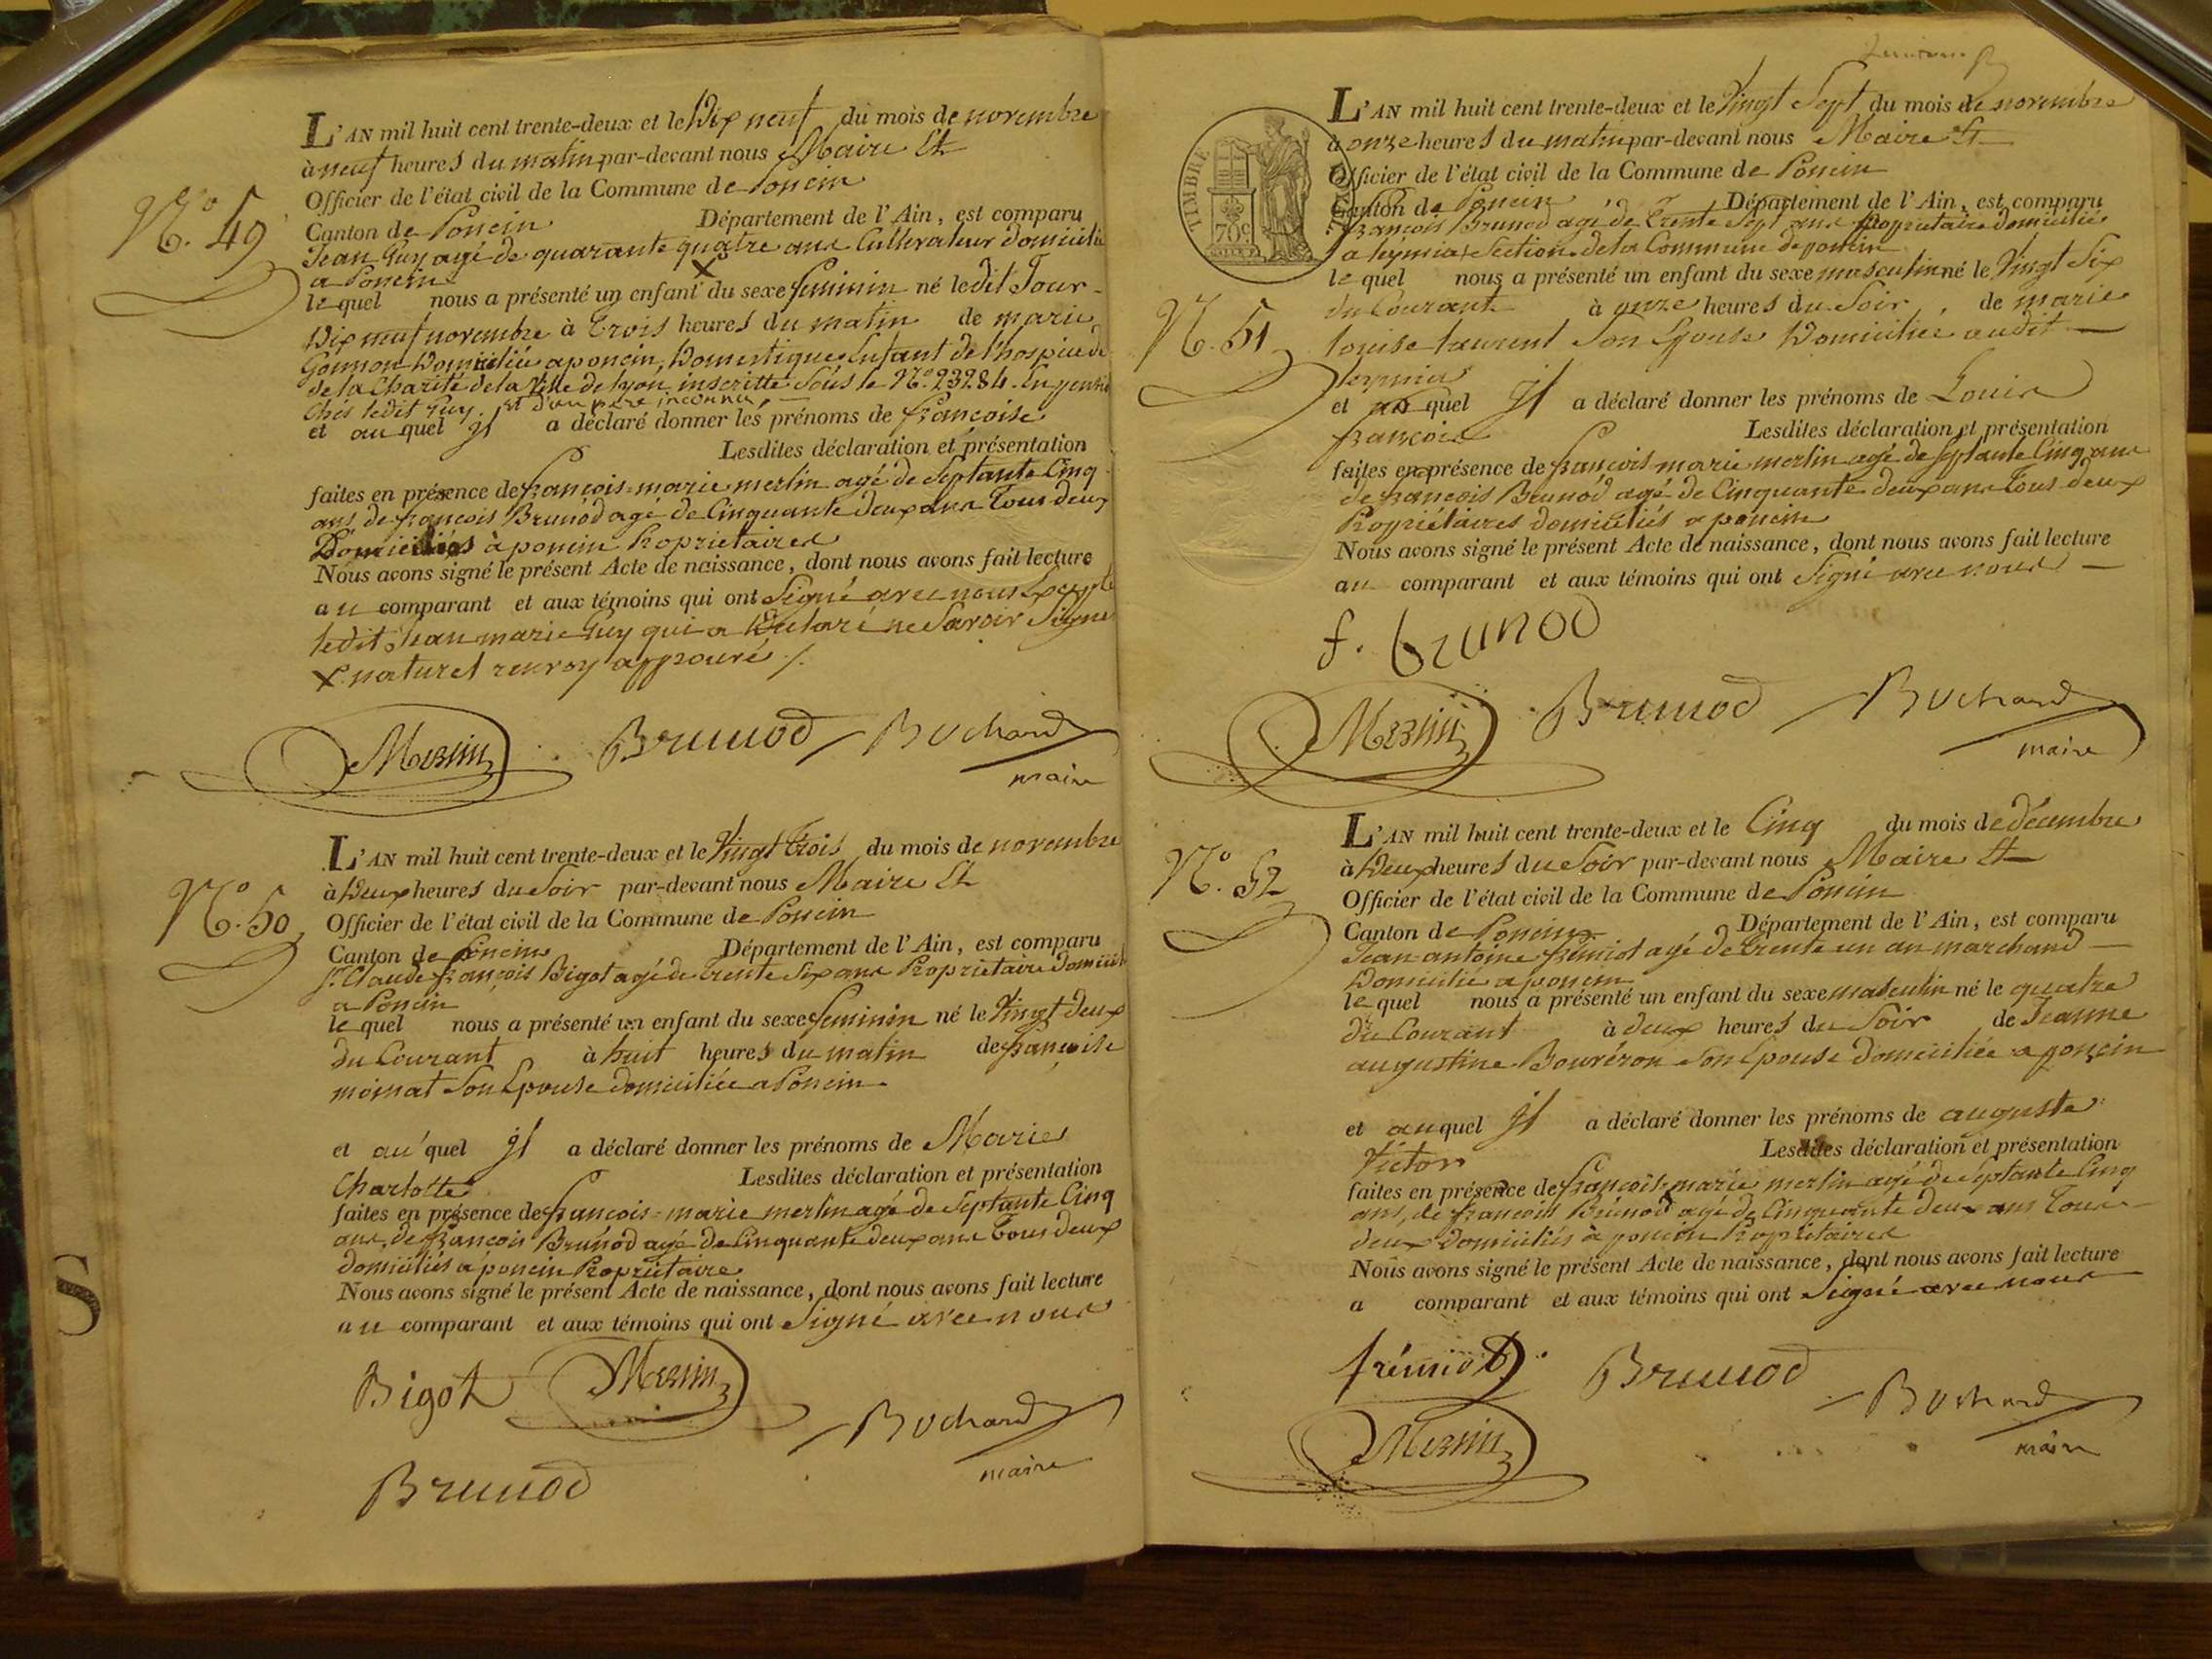 L'AN mil huit cent trente-deux et le Dix neuf du mois de novembre
à neuf heures du matin par-devant nous Maire Et
Officier de l'état civil de la Commune de Poncin
N.º 49
Canton de Poncin Département de l'Ain, est comparu
Jean Guy agé de quarante quatre ans Cultivateur domicilié
a Poncin
le quel nous a présenté un enfant X du sexe feminin né ledit Jour
Dix neuf novembre à Trois heures du matin de marie
Domiciliée a poncin, Domestique Enfant de l'hospice de
de la Charité de la Ville de lyon inscritte Sous le N.º 23284
Chés ledit Guy. et d'un pere inconnu
et au quel Jl a déclaré donner les prénoms de françoise
Lesdites déclaration et présentation
faites en présence de françois-marie merlin agé de Septante Cinq
ans, de françois Brunod agé de Cinquante deux ans Tous deux
Domiciliés à poncin Proprietaires
Nous avons signé le présent Acte de naissance, dont nous avons fait lecture
au comparant et aux témoins qui ont Signé avec nous Excepté
ledit Jean marie Guy qui a Déclaré ne Savoir Signer
X naturel renvoy approuvé /.
Merlin Brunod Bochard
maire
L'AN mil huit cent trente-deux et le Vingt Trois du mois de novembre
à Deux heures du Soir par-devant nous Maire Et
N.º 50
Officier de l'état civil de la Commune de Poncin
Canton de Poncin Département de l'Ain, est comparu
Sr. Claude françois Bigot agé de Trente Six ans Proprietaire Domicilié
a Poncin
le quel nous a présenté un enfant du sexe feminin né le Vingt deux
du Courant à huit heures du matin de françoise
moinat Son Epouse domiciliée a Poncin
et au quel Jl a déclaré donner les prénoms de Marie
Charlotte Lesdites déclaration et présentation
faites en présence de françois-marie merlin agé de Septante Cinq
ans, de françois Brunod agé de Cinquante deux ans Tous deux
domiciliés à poncin Propriétaires
Nous avons signé le présent Acte de naissance, dont nous avons fait lecture
au comparant et aux témoins qui ont Signé avec nous
Bigot Merlin
Bochard
maire
Brunod
S
L'AN mil huit cent trente-deux et le Vingt Sept du mois de novembre
à onze heures du matin par-devant nous Maire Et
Officier de l'état civil de la Commune de Poncin
TIMBRE
70c
Canton de Poncin Département de l'Ain, est comparu
françois Brunod agé de Trente Sept ans Proprietaire domicilié
a leymiat Section de la Commune de poncin
le quel nous a présenté un enfant du sexe masculin né le Vingt Six
du Courant à onze heures du Soir de marie
N. 51
louise laurent Son Epouse Domiciliée audit
leymiat
et au quel Jl a déclaré donner les prénoms de Louis
françois Lesdites déclaration et présentation
faites en présence de françois marie merlin agé de Septante Cinq ans
de françois Brunod agé de Cinquante deux ans Tous deux
Propriétaires domiciliés a poncin
Nous avons signé le présent Acte de naissance, dont nous avons fait lecture
au comparant et aux témoins qui ont Signé avec nous
f. brunod
Merlin Brunod Bochard
maire
L'AN mil huit cent trente-deux et le Cinq du mois de décembre
à Deux heures du Soir par-devant nous Maire Et
N.º 52
Officier de l'état civil de la Commune de Poncin
Canton de Poncin Département de l'Ain, est comparu
Jean antoine frémiot agé de Trente un an marchand
Domicilié a poncin
le quel nous a présenté un enfant du sexe masculin né le quatre
du Courant à deux heures du Soir de Jeanne
augustine Son Epouse domiciliée a poncin
et au quel Jl a déclaré donner les prénoms de auguste
Victor Lesdites déclaration et présentation
faites en présence de françois marie merlin agé de Septante Cinq
ans, de françois Brunod agé de Cinquante deux ans Tous
deux domiciliés à poncin Propriétaires
Nous avons signé le présent Acte de naissance, dont nous avons fait lecture
a comparant et aux témoins qui ont Signé avec nous
frémiot Brunod
Bochard
maire
Merlin